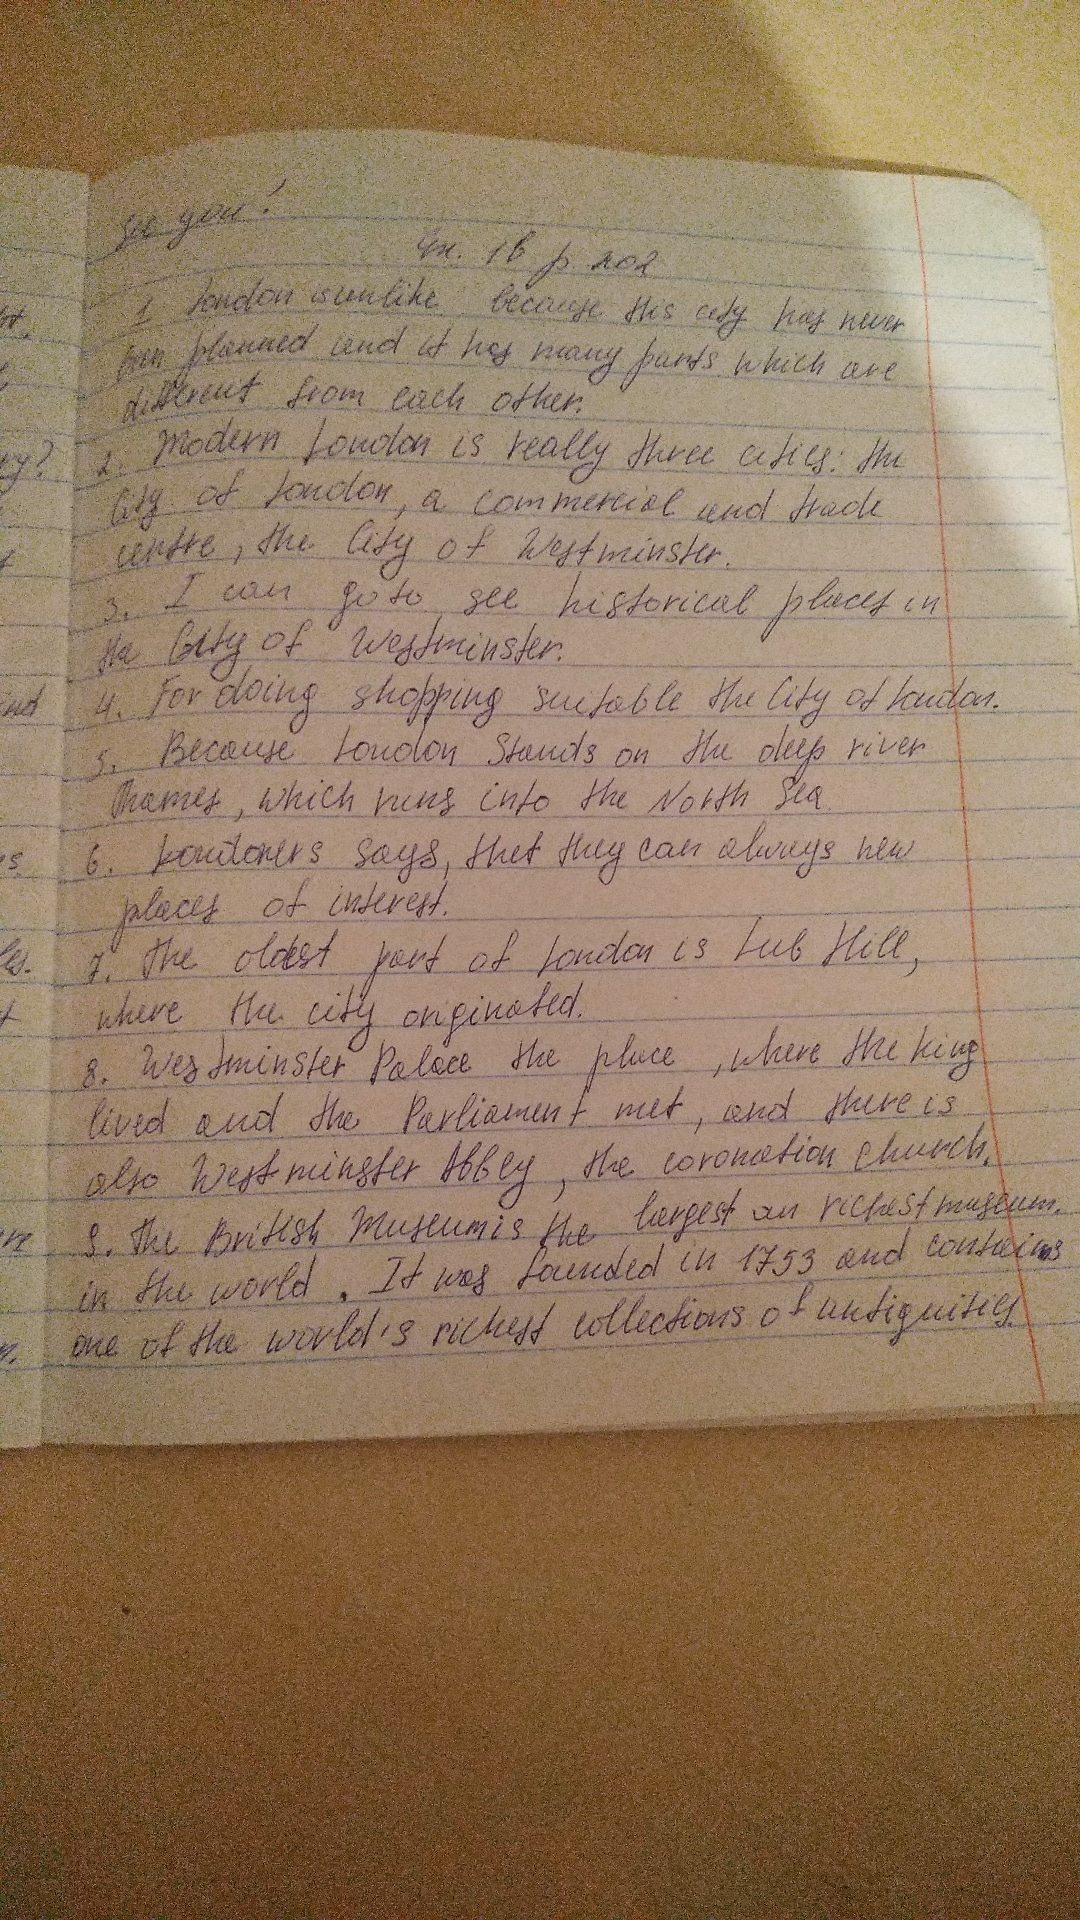 See you!
Ex. 1b p 202
1 London is unlike because this city has never
been planned and it has many parts which are
different from each other.
2. Modern London is really three cities: the
City of London, a commercial and trade
centre, the City of Westminster.
3. I can go to see historical places in
the City of Westminster.
4. For doing shopping suitable the City of London.
5. Because London Stands on the deep river
Thames, which runs into the North Sea
6. Londoners says, thet they can always new
places of interest.
7. The oldest part of London is Lub Hill,
where the city originated.
8. Westminster Palace the place, where the king
lived and the Parliament met, and there is
also Westminster Abbey, the coronation church.
9. The British Museum is the largest an richest museum.
in the world. It was founded in 1753 and contains
one of the world's richest collections of antiquities.